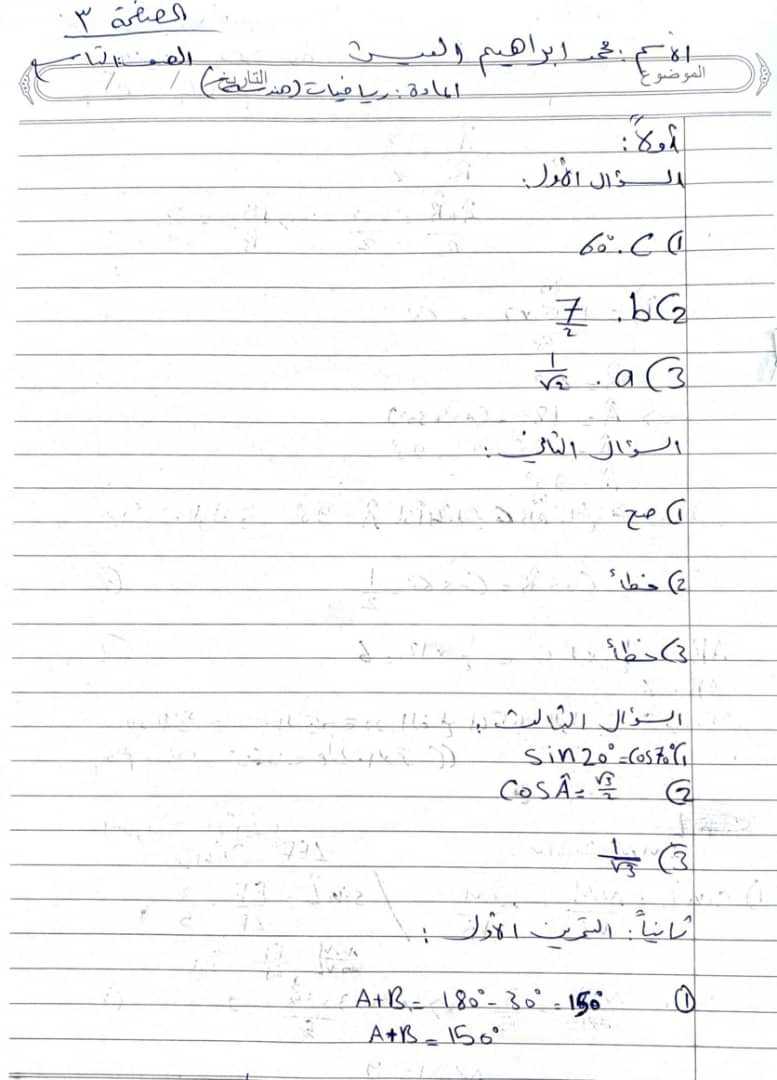 الصفحة ٣
الاسم: محمد ابراهيم    الصف: التاسع
الموضوع
المادة: رياضيات (هندسة)    التاريخ    /    /
أولاً:
السؤال الأول:
1) C. 60°
2) b. 7/2
3) a. 1/√2
السؤال الثاني:
1) صح
2) خطأ
3) خطأ
السؤال الثالث:
1) sin20°=cos70°
2) COSÂ = √3/2
3) 1/√3
ثانياً: التمرين الأول:
① A+B = 180° - 30° = 150°
A+B = 150°